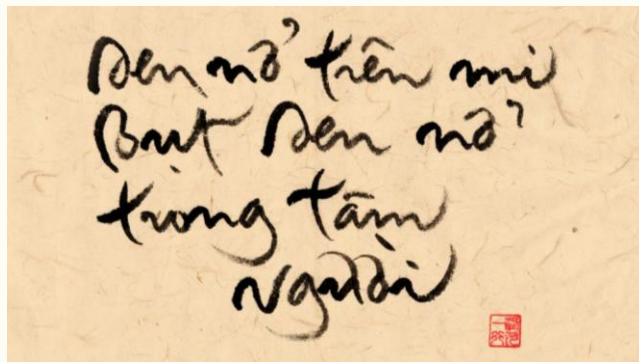 sen nở trên mi
Bụt sen nở
trong tâm
người